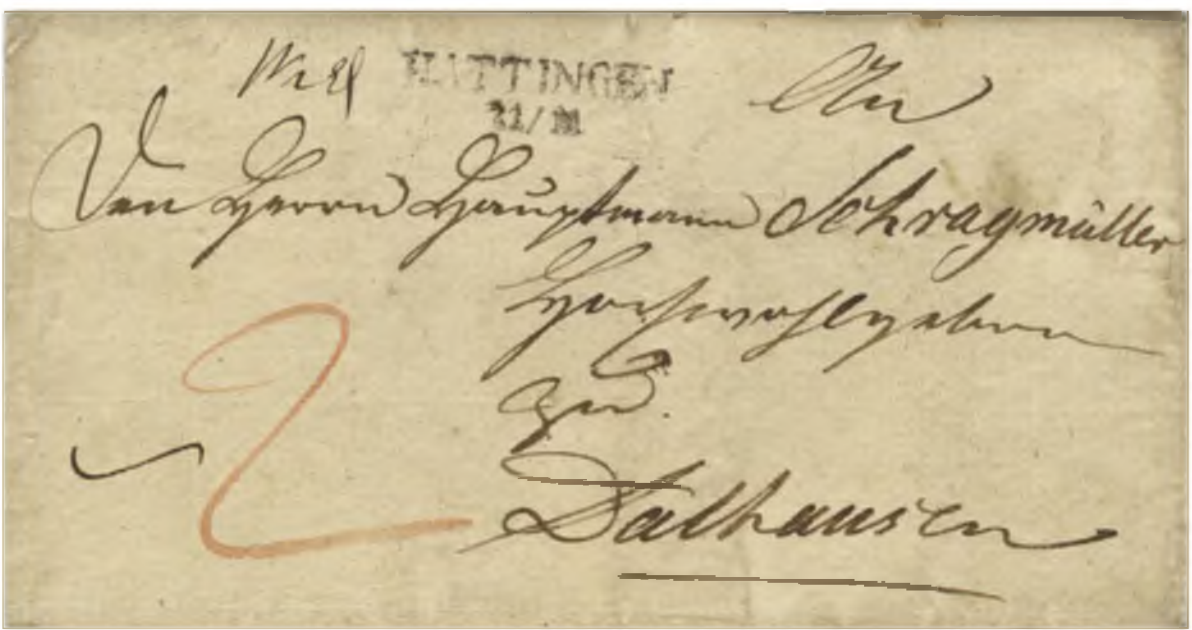 HATTINGEN
21/11
An
Den Herrn Hauptmann Schragmüller
Hochwohlgeboren
zu
Dalhausen
2